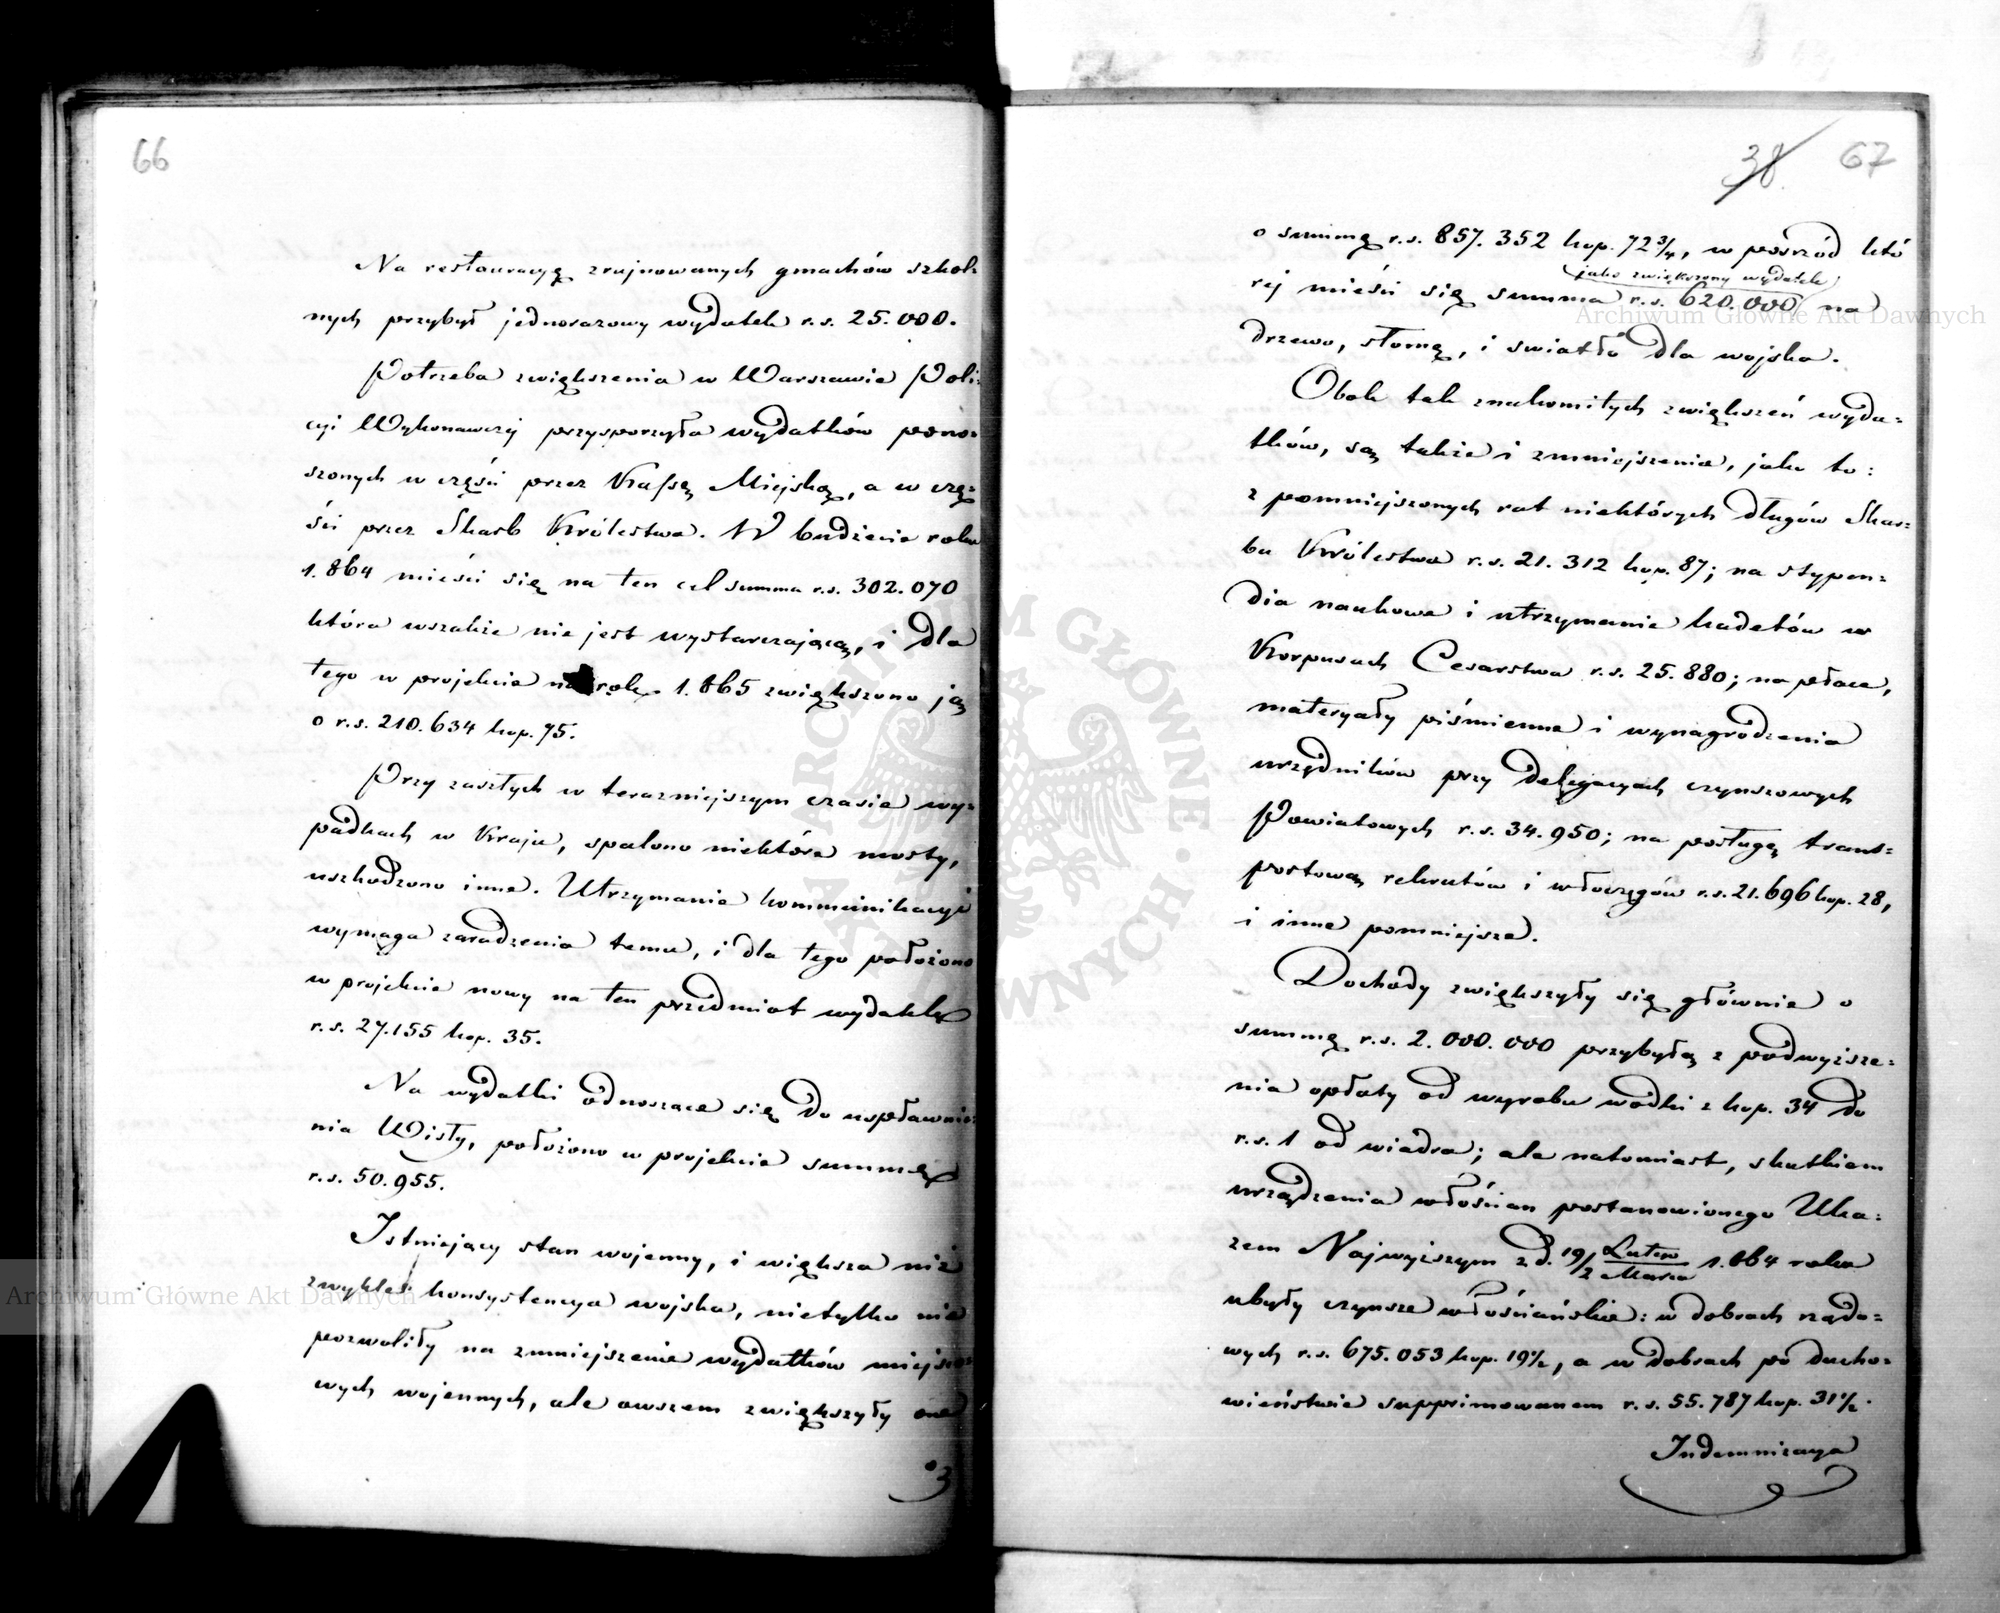 66
Na restauracyę zrujnowanych gmachów szkol-
nych przybył jednorazowy wydatek r.s. 25.000.
Potrzeba zwiększenia w Warszawie Poli-
cyi Wykonawczej przysporzyła wydatków pono-
szonych w części przez Kassę Miejską, a w czę-
ści przez Skarb Królestwa. W budżecie roku
1.864 mieści się na ten cel summa r.s. 302.070
która wszakże nie jest wystarczającą, i dla
tego w projekcie na rok 1.865 zwiększono ją
o r.s. 210.634 kop. 75.
Przy zaszłych w teraźniejszym czasie wy-
padkach w Kraju, spalono niektóre mosty,
uszkodzono inne. Utrzymanie kommunikacyi
wymaga zaradzenia temu, i dla tego położono
w projekcie nowy na ten przedmiot wydatek
r.s. 27.155 kop. 35.
Na wydatki odnoszące się do uspławnie-
nia Wisły, położono w projekcie summę
r.s. 50.955.
Istniejący stan wojenny, i większa niż
zwykle konsystencya wojska, nietylko nie
pozwoliły na zmniejszenie wydatków miejsco-
wych wojennych, ale owszem zwiększyły one
o
38. 67
o summę r.s. 857.352 kop. 72 3/4, w pośród któ
jako zwiększony wydatek
rej mieści się summa r.s. 620.000 na
drzewo, słomę, i światło dla wojska.
Obok tak znakomitych zwiększeń wyda-
tków, są także i zmniejszenia, jako to:
z pomniejszonych rat niektórych długów Skar-
bu Królestwa r.s. 21.312 kop. 87; na stypen-
dia naukowe i utrzymanie kadetów w
Korpusach Cesarstwa r.s. 25.880; na płace,
materyały piśmienne i wynagrodzenia
urzędników przy delegacyach czynszowych
Powiatowych r.s. 34.950; na posługę trans-
portową rekrutów i włóczęgów r.s. 21.696 kop. 28,
i inne pomniejsze.
Dochody zwiększyły się głównie o
summę r.s. 2.000.000 przybyłą z podwyższe-
nia opłaty od wyrobu wódki z kop. 34 do
r.s. 1 od wiadra; ale natomiast, skutkiem
urządzenia włościan postanowionego Uka-
zem Najwyższym z d. 19/2 Lutego/Marca 1.864 roku
ubyły czynsze włościańskie: w dobrach rządo-
wych r.s. 675.053 kop. 19 1/2, a w dobrach po ducho-
wieństwie supprimowanem r.s. 55.787 kop. 31 1/2.
Indemnizacya
Archiwum Główne Akt Dawnych
Archiwum Główne Akt Dawnych
ARCHIWUM GŁÓWNE AKT DAWNYCH